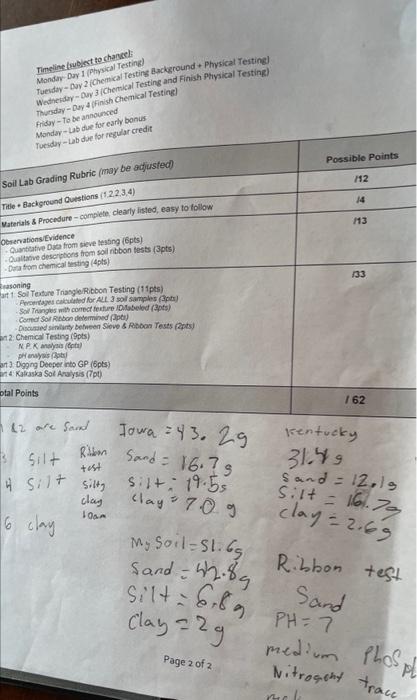 Timeline (subject to change):
Monday- Day 1 (Physical Testing)
Tuesday - Day 2 (Chemical Testing Background + Physical Testing)
Wednesday - Day 3 (Chemical Testing and Finish Physical Testing)
Thursday - Day 4 (Finish Chemical Testing)
Friday - To be announced
Monday - Lab due for early bonus
Tuesday - Lab due for regular credit
Soil Lab Grading Rubric (may be adjusted)
Possible Points
Title + Background Questions (1,2,2,3,4)
/12
Materials & Procedure - complete, clearly listed, easy to follow
/4
Observations/Evidence
/13
- Quantitative Data from sieve testing (6pts)
- Qualitative descriptions from soil ribbon tests (3pts)
- Data from chemical testing (4pts)
Reasoning
/33
art 1: Soil Texture Triangle/Ribbon Testing (11pts)
- Percentages calculated for ALL 3 soil samples (3pts)
- Soil Triangles with correct texture ID/labeled (3pts)
- Correct Soil Ribbon determined (3pts)
- Discussed similarity between Sieve & Ribbon Tests (2pts)
art 2: Chemical Testing (9pts)
- N, P, K analysis (6pts)
- pH analysis (3pts)
art 3: Digging Deeper into GP (6pts)
art 4: Kalkaska Soil Analysis (7pt)
otal Points
/ 62
1 &2 are Sand
3 Silt
4 Silt
6 clay
Ribbon
test
Silty
clay
loam
Iowa = 43.2g
Sand = 16.7g
Silt: 19.5s
clay = 7.0 g
My Soil = 51.6g
Sand = 42.8g
Silt = 6.8g
Clay = 2g
Kentucky
31.4g
Sand = 12.1g
Silt = 16.7g
clay = 2.6g
Ribbon test
Sand
PH = 7
medium Phosp
Nitrogent trace
Page 2 of 2